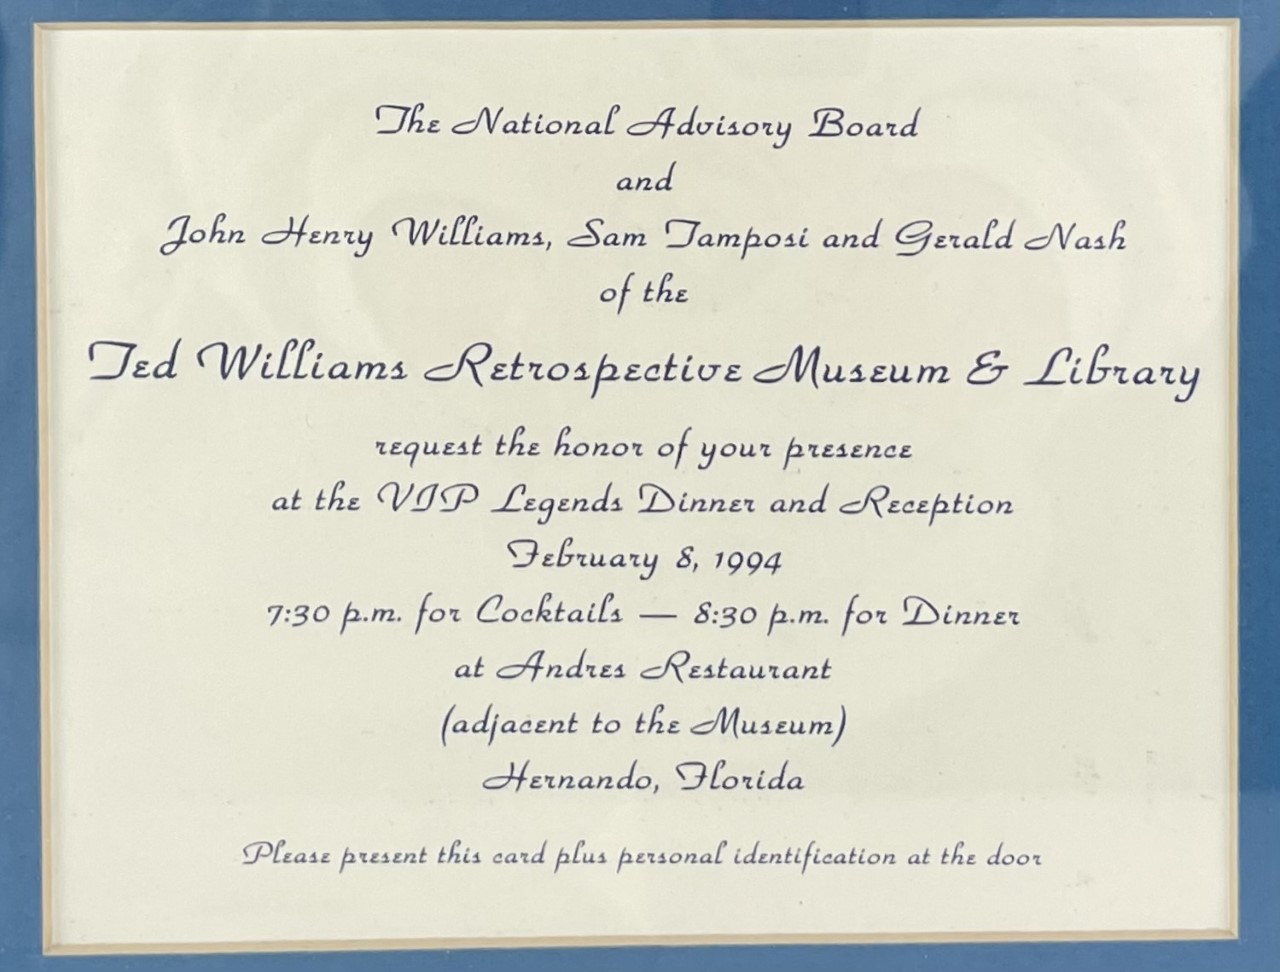 The National Advisory Board
and
John Henry Williams, Sam Tamposi and Gerald Nash
of the
Ted Williams Retrospective Museum & Library
request the honor of your presence
at the VIP Legends Dinner and Reception
February 8, 1994
7:30 p.m. for Cocktails — 8:30 p.m. for Dinner
at Andres Restaurant
(adjacent to the Museum)
Hernando, Florida
Please present this card plus personal identification at the door